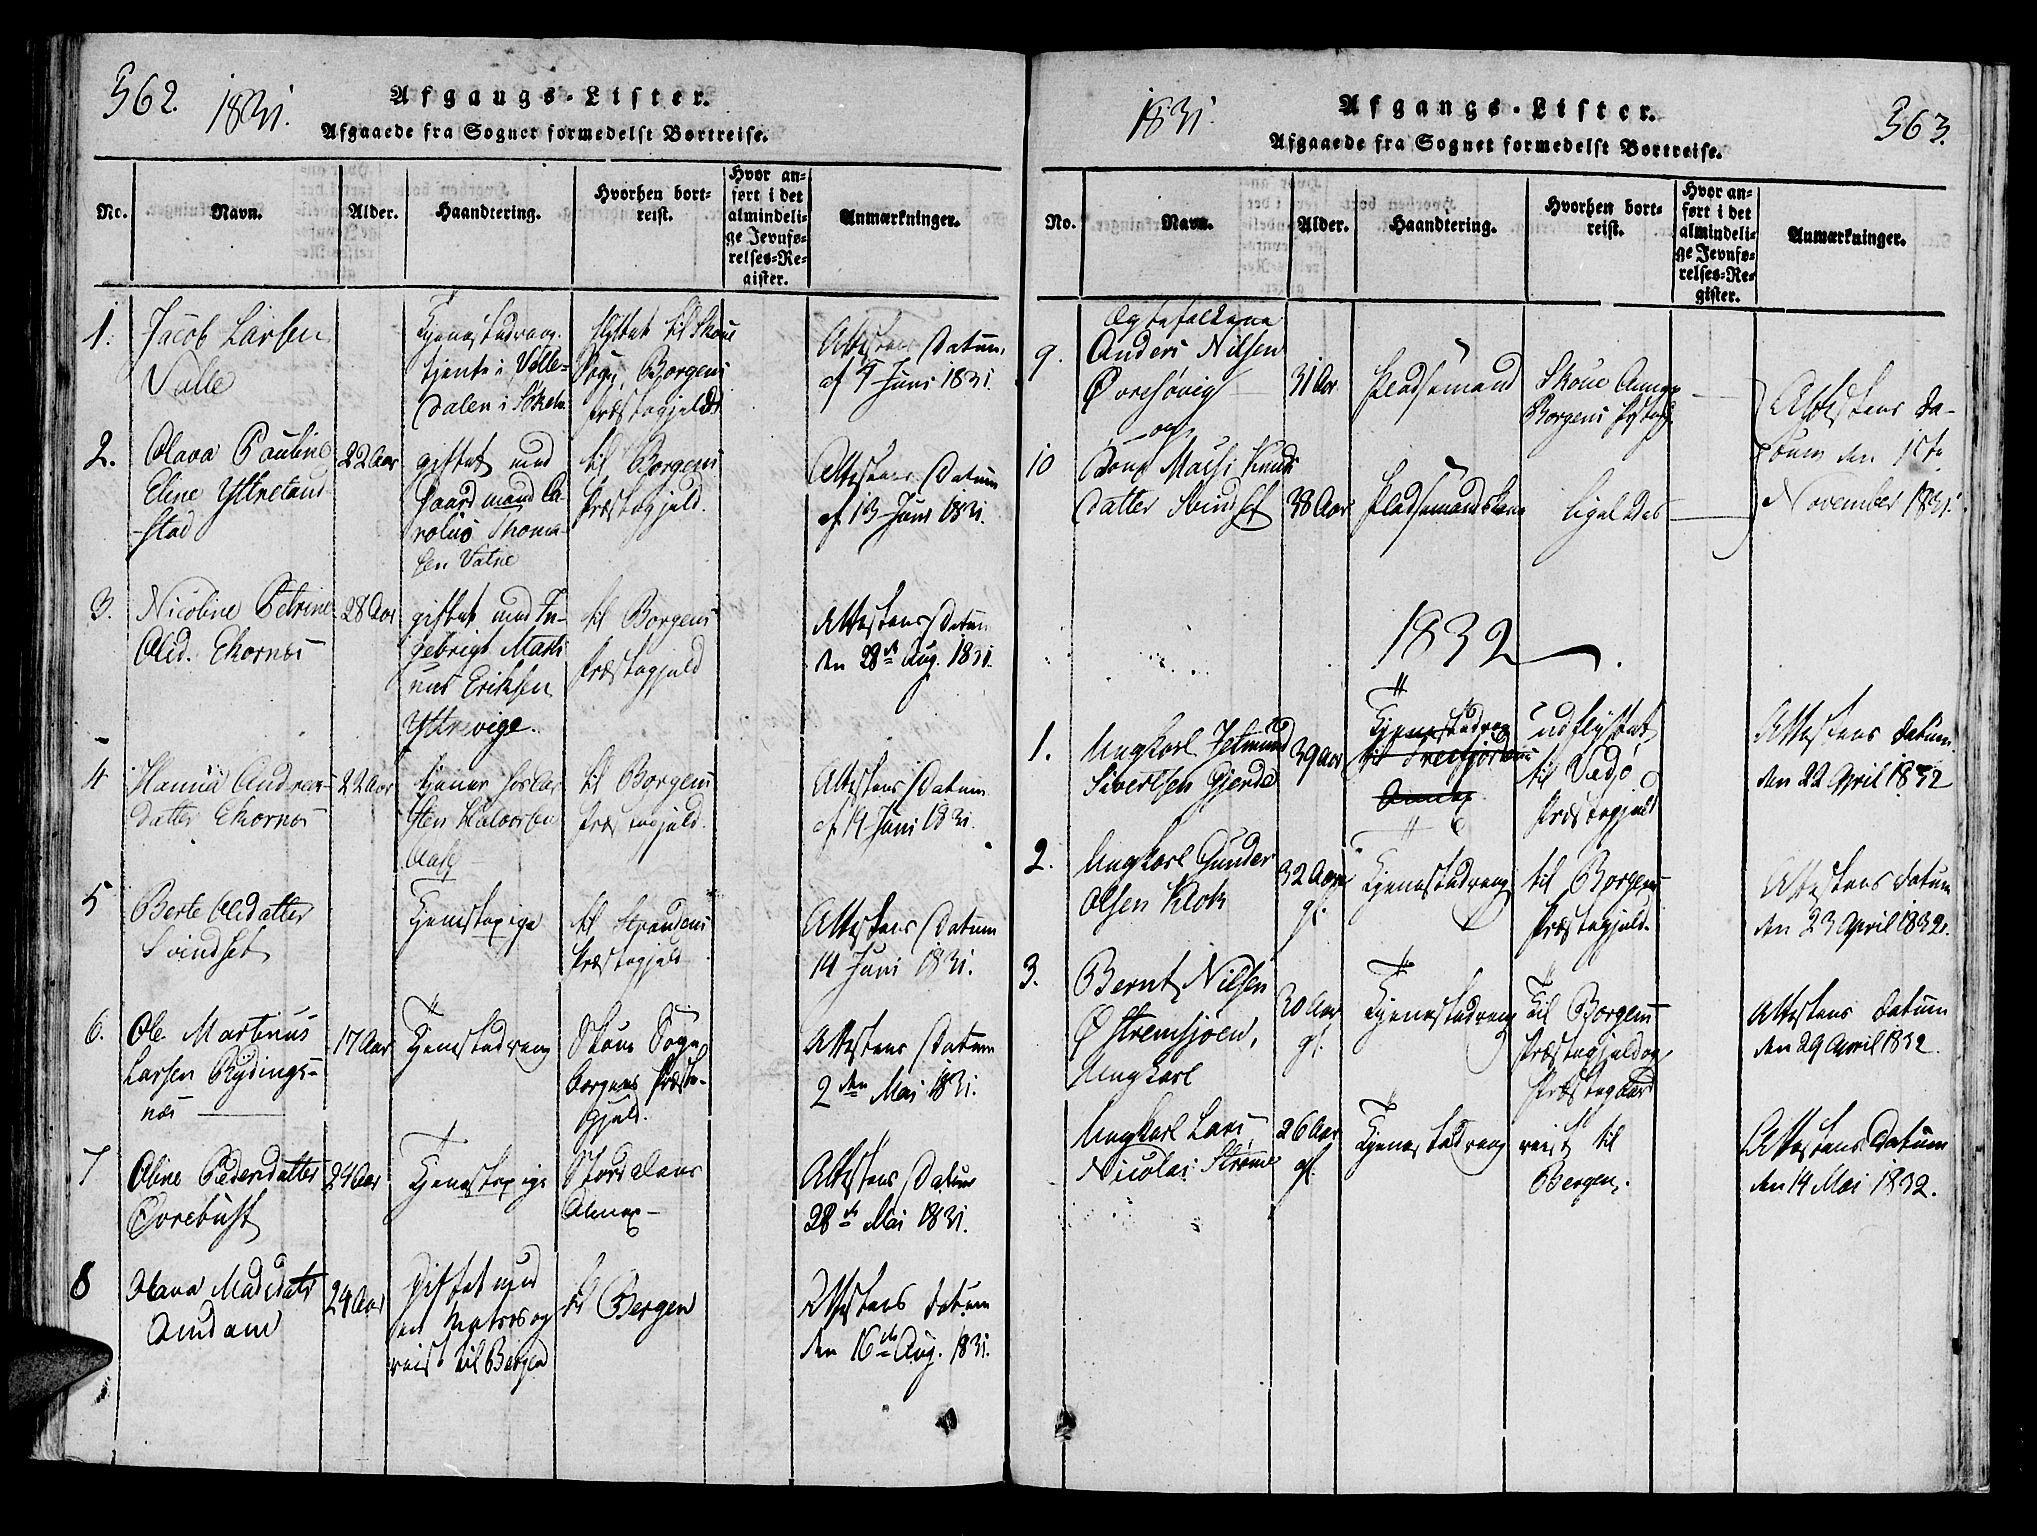 562.
1831.
Afgangs-Lister.
Afgaaede fra Sognet formedelst Bortreise.
No.
Navn.
Alder.
Haandtering.
Hvorhen bort-
reist.
Hvor an-
ført i det
almindeli-
ge Jevnfø-
relses-Re-
gister.
Anmærkninger.
1.
Jacob Larsen
Valle
Tjenestedreng
tjente i Velle-
dalen i
flyttet til Skoue
Sogn, Borgens
Præstegjeld
Attestens Datum
af 4 Juni 1831.
2.
Olava Pauline
Eline Ytreland-
stad
22 Aar
giftet med
Gaardmand Ca-
rolus Thoma-
sen Vatne
til Borgens
Præstegjeld.
Attestens Datum
af 13 Juni 1831.
3.
Nicoline Petrine
Olsd. Ekornes
28 Aar
giftet med In-
gebrigt Marti
nus Eriksen
Ytrevige.
til Borgens
Præstegjeld
Attestens Datum
den 28de Aug. 1831.
4
Hanna Andreas-
datter Ekornes
22 Aar
tjener hos
til Borgens
Præstegjeld.
Attestens Datum
af 14 Juni 1831.
5
Berte Oledatter
Svindset
Tjenestepige
til Strandens
Præstegjeld
Attestens Datum
14 Juni 1831.
6.
Ole Martinus
Larsen Rydings-
nes
17 Aar
Tjenestedreng
Skoue Sogn
Borgens Præste-
gjeld.
Attestens Datum
2den Mai 1831.
7
Oline Pedersdatter
Øvrebust
24 Aar
Tjenestepige
Stordalens
Annex
Attestens Datum
28de Mai 1831.
8
Olava Madsdatr
Amdam
24 Aar
Giftet med
en Matros og
reist til Bergen
til Bergen
Attestens Datum
den 16de Aug. 1831.
1831.
Afgangs-Lister.
363.
Afgaaede fra Sognet formedelst Bortreise.
No.
Navn.
Alder.
Haandtering.
Hvorhen bort-
reist.
Hvor an-
ført i det
almindeli-
ge Jevnfø-
relses-Re-
gister.
Anmærkninger.
9.
Ægtefolkene
Anders Nilsen
Øvrehøvig
og
31 Aar
Pladsemand
Skoue Annex
Borgens Pstgj.
Attestens Da-
tum den
November 1831.
10
Kone Marhi Knuds
datter Svindset
38 Aar
Pladsemandskone
ligeledes
1832
1.
Ungkarl Jetmund
Sivertsen Gjerde
39 Aar
Tjenestedreng
Annex
udflyttet
til Vedø
Præstegjeld
Attestens Datum
den 22 April 1832
2.
Ungkarl Gunder
Olsen Klok
32 Aar
gl.
Tjenestedreng
til Borgens
Præstegjeld.
Attestens Datum
den 23 April 1832.
3.
Bernt Nilsen
Østremsjøen,
Ungkarl
30 Aar
gl.
Tjenestedreng
Til Borgens
Præstegjeld og
Præstegaard
Attestens Datum
den 29 April 1832.
Ungkarl Lars
Nicolai Strømme
26 Aar
gl.
Tjenestedreng
reist til
Bergen.
Attestens Datum
den 14 Mai 1832.